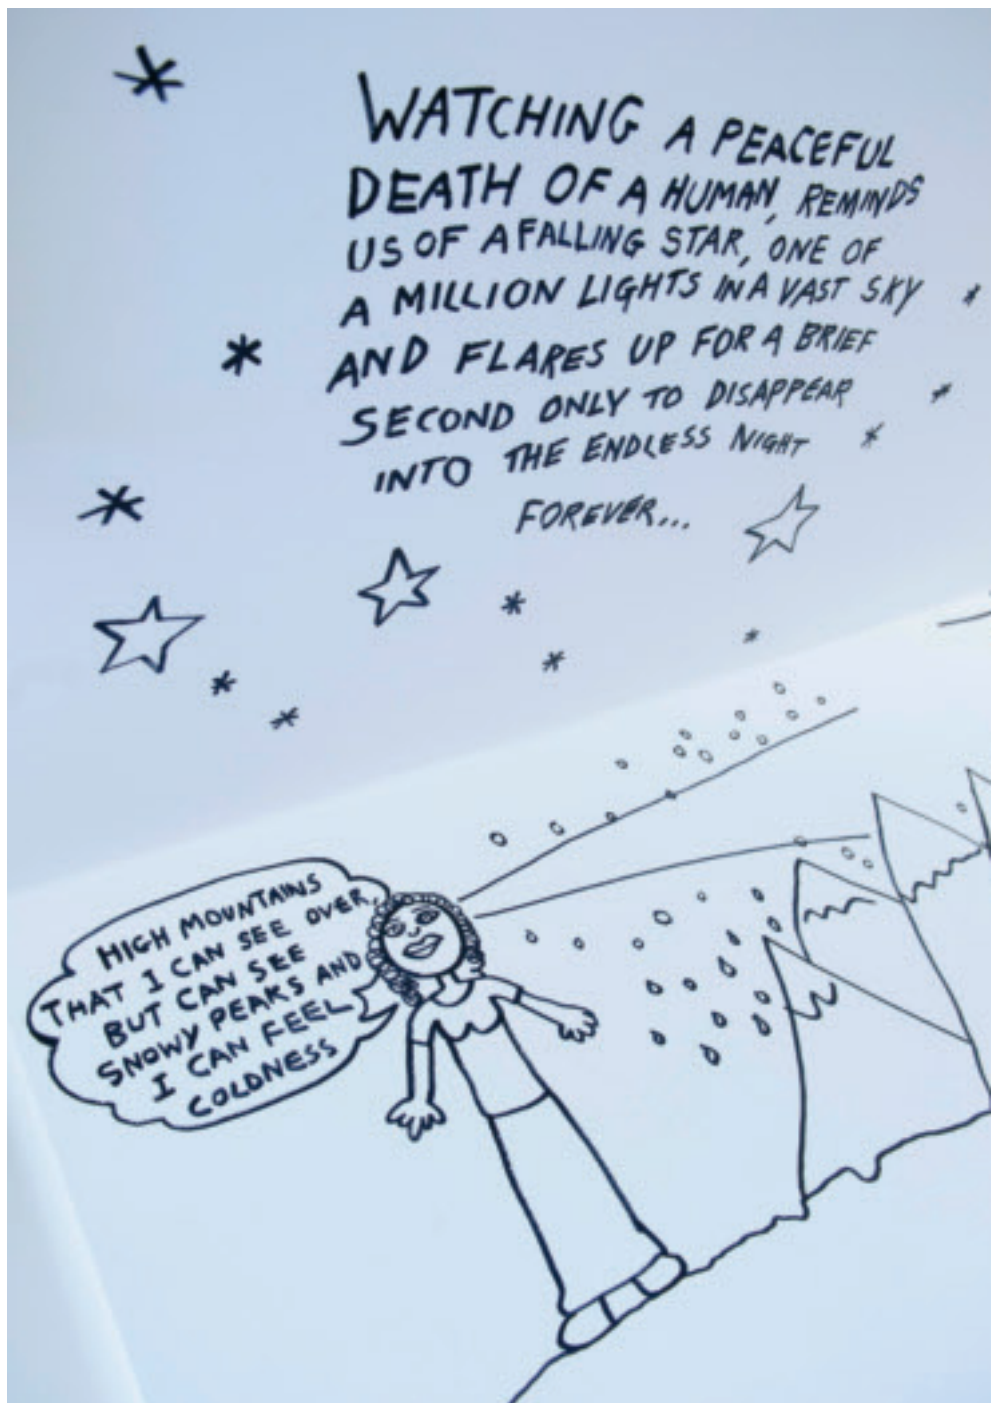 WATCHING A PEACEFUL
DEATH OF A HUMAN, REMINDS
US OF A FALLING STAR, ONE OF
A MILLION LIGHTS IN A VAST SKY
AND FLARES UP FOR A BRIEF
SECOND ONLY TO DISAPPEAR
INTO THE ENDLESS NIGHT
FOREVER...
HIGH MOUNTAINS
THAT I CAN SEE OVER,
BUT CAN SEE
SNOWY PEAKS AND
I CAN FEEL
COLDNESS